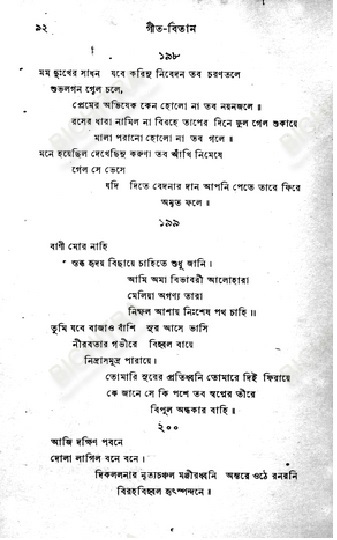 ৯২
গীত-বিতান
১৯৮
মম দুঃখের সাধন যবে করিনু নিবেদন তব চরণতলে
শুভলগন গেল চলে,
প্রেমের অভিষেক কেন হোলো না তব নয়নজলে॥
রসের ধারা নামিল না বিরহে তাপের দিনে ফুল গেল শুকায়ে
মালা পরানো হোলো না তব গলে॥
মনে হয়েছিল দেখেছিনু করুণা তব আঁখি নিমেষে
গেল সে ভেসে
যদি দিতে বেদনার দান আপনি পেতে তারে ফিরে
অমৃত ফলে॥
১৯৯
বাণী মোর নাহি
স্তব্ধ হৃদয় বিছায়ে চাহিতে শুধু জানি।
আমি অমা বিভাবরী আলোহারা
মেলিয়া অগণ্য তারা
নিষ্ফল আশায় নিঃশেষ পথ চাহি॥
তুমি যবে বাজাও বাঁশি সুর আসে ভাসি
নীরবতার গভীরে বিহ্বল বায়ে
নিদ্রাসমুদ্র পারায়ে।
তোমারি সুরের প্রতিধ্বনি তোমারে দিই ফিরায়ে
কে জানে সে কি পশে তব স্বপ্নের তীরে
বিপুল অন্ধকার বাহি॥
২০০
আজি দক্ষিণ পবনে
দোলা লাগিল বনে বনে।
দিকললনার নৃত্যচঞ্চল মঞ্জীরধ্বনি অন্তরে ওঠে রনরনি
বিরহবিহ্বল হৃৎস্পন্দনে॥